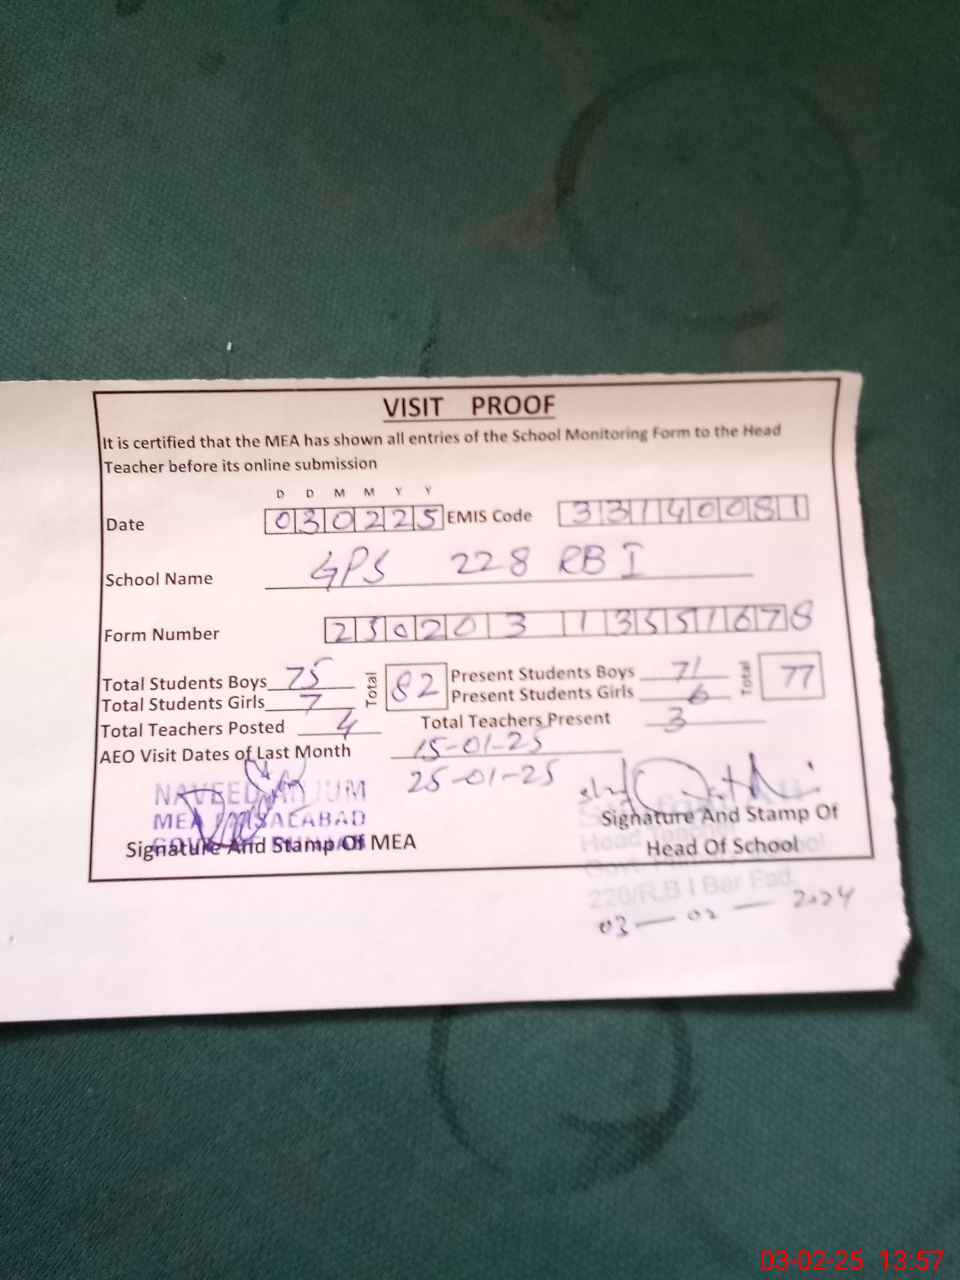 VISIT PROOF
It is certified that the MEA has shown all entries of the School Monitoring Form to the Head
Teacher before its online submission
D D M M Y Y
Date 030225 EMIS Code 33140081
School Name GPS 228 RB I
Form Number
Total Students Boys 75 Total 82 Present Students Boys 71 Total 77
Total Students Girls 7 Present Students Girls 6
Total Teachers Posted 4 Total Teachers Present 3
AEO Visit Dates of Last Month 15-01-25
25-01-25
MEA FAISALABAD
Signature And Stamp Of MEA
Signature And Stamp Of
Head Of School
Head Teacher
03-02-2024
03-02-25 13:57